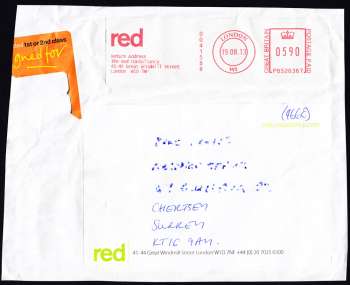 1st or 2nd class
gned for
red
return address
the red consultancy
41-44 Great Windmill Street
London W1D 7NF
LONDON
19 08 13
W1
GREAT BRITAIN
0590
POSTAGE PAID
PB520367
(4662)
CHERTSEY
SURREY
KT16 9AY
red
41-44 Great Windmill Street London W1D 7NF +44 (0) 20 7025 6500